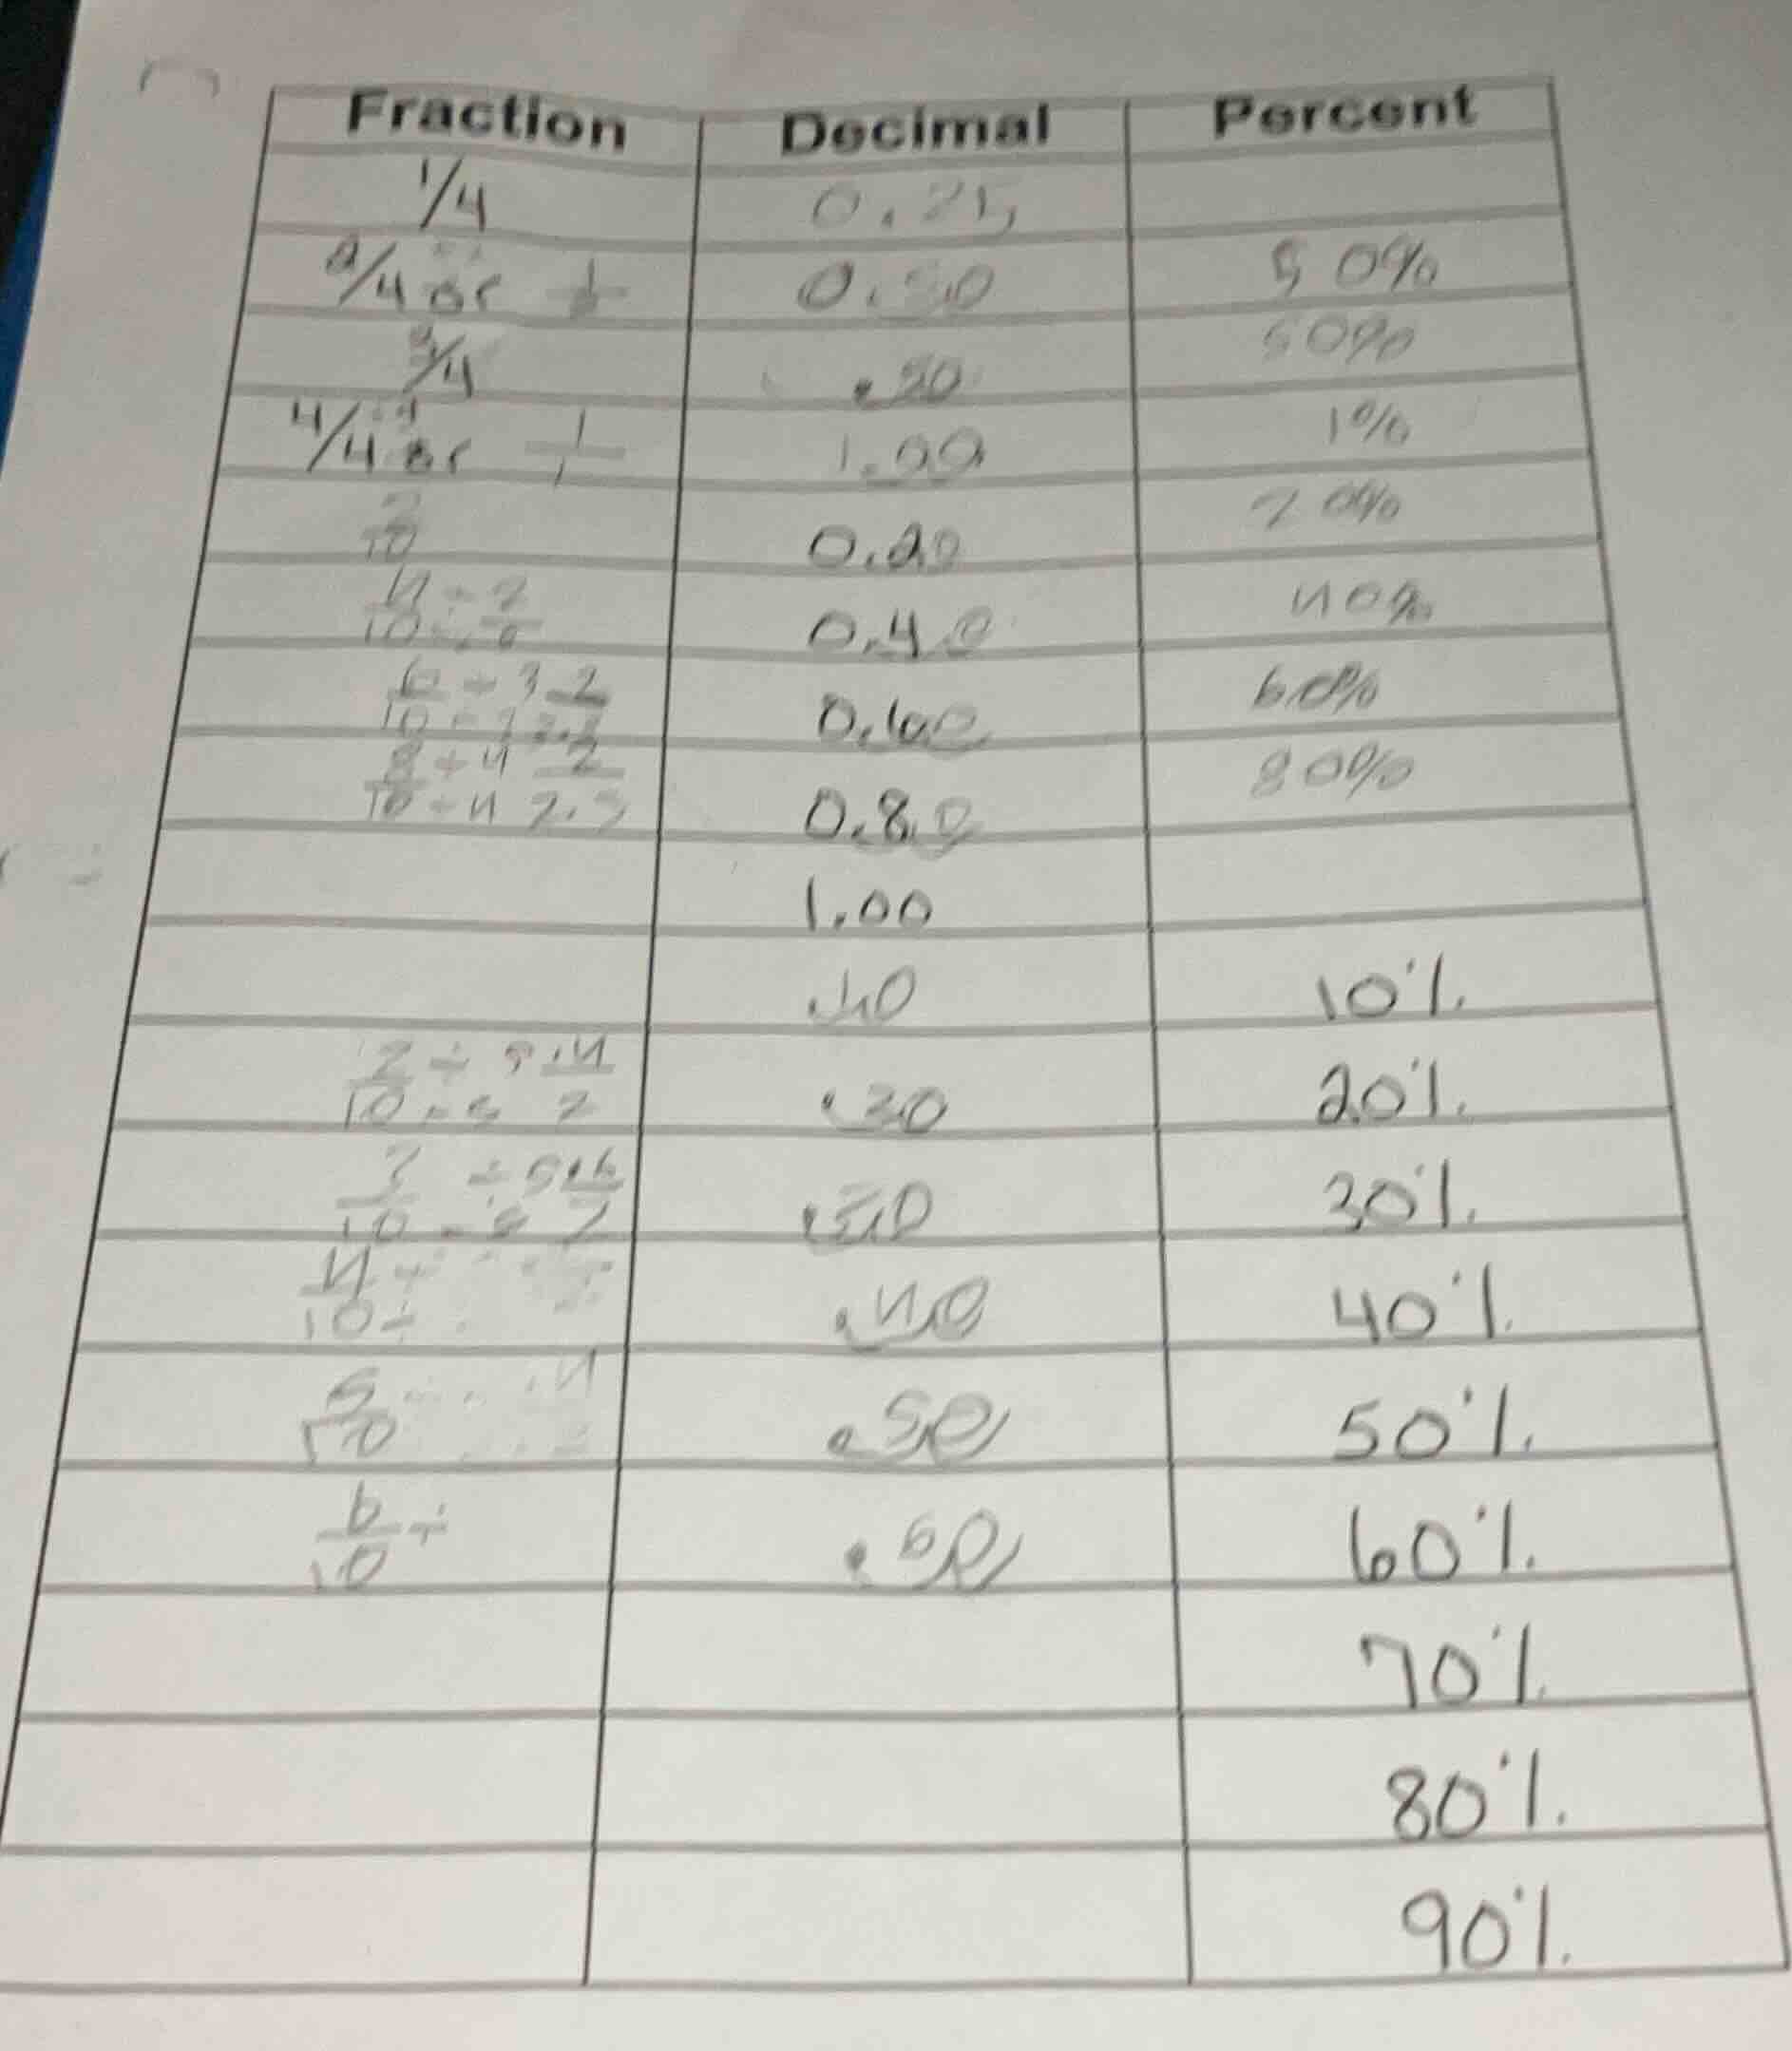 Fraction Decimal Percent
1/4 0.25
2/4 or 1 0.50 50%
3/4 .50 50%
4/4 or 1/1 1.00 1%
2/10 0.20 20%
4/10 ÷ 2 0.40 40%
6/10 ÷ 3 2 0.60 60%
8/10 ÷ 4 2/2.5 0.80 80%
1.00
.10 10%
2/10 ÷ 5 .4/2 .20 20%
3/10 ÷ 5 .6/2 .30 30%
4/10 ÷ .40 40%
5/10 .50 50%
6/10 ÷ .60 60%
70%
80%
90%